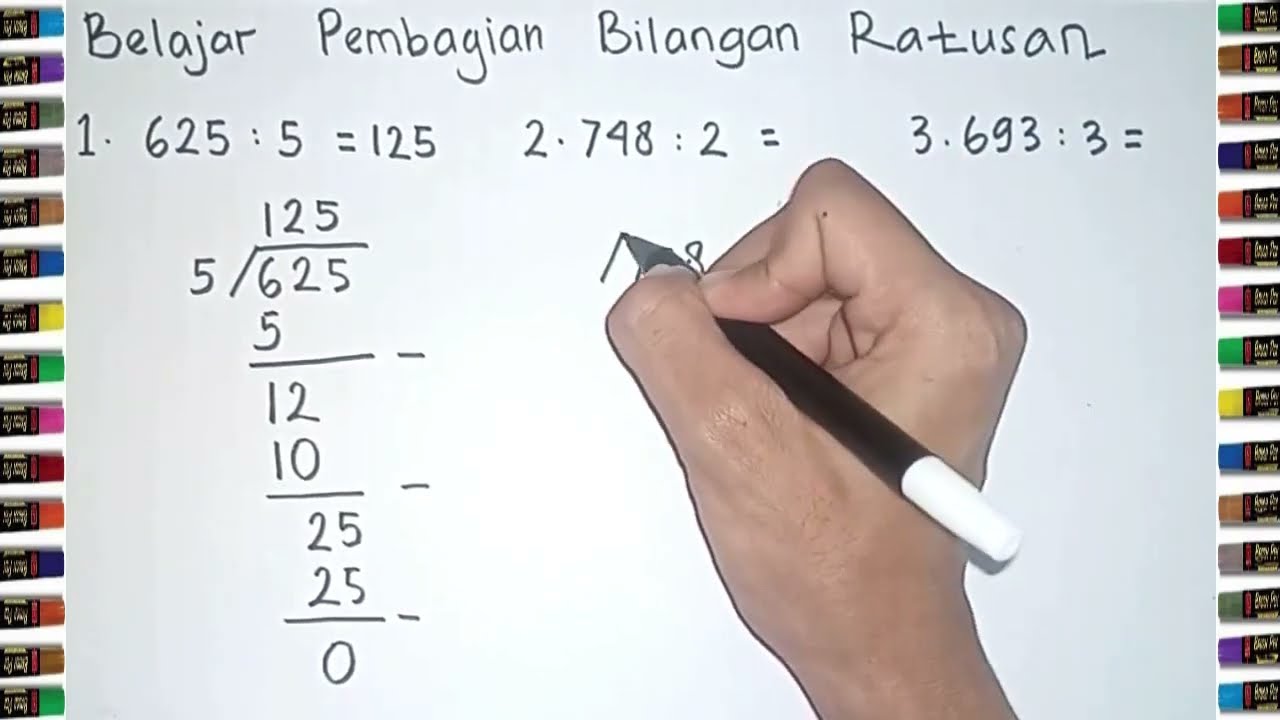 Belajar Pembagian Bilangan Ratusan
1. 625 : 5 = 125
2. 748 : 2 =
3. 693 : 3 =
125
5 / 625
5
-
12
10
-
25
25
-
0
8